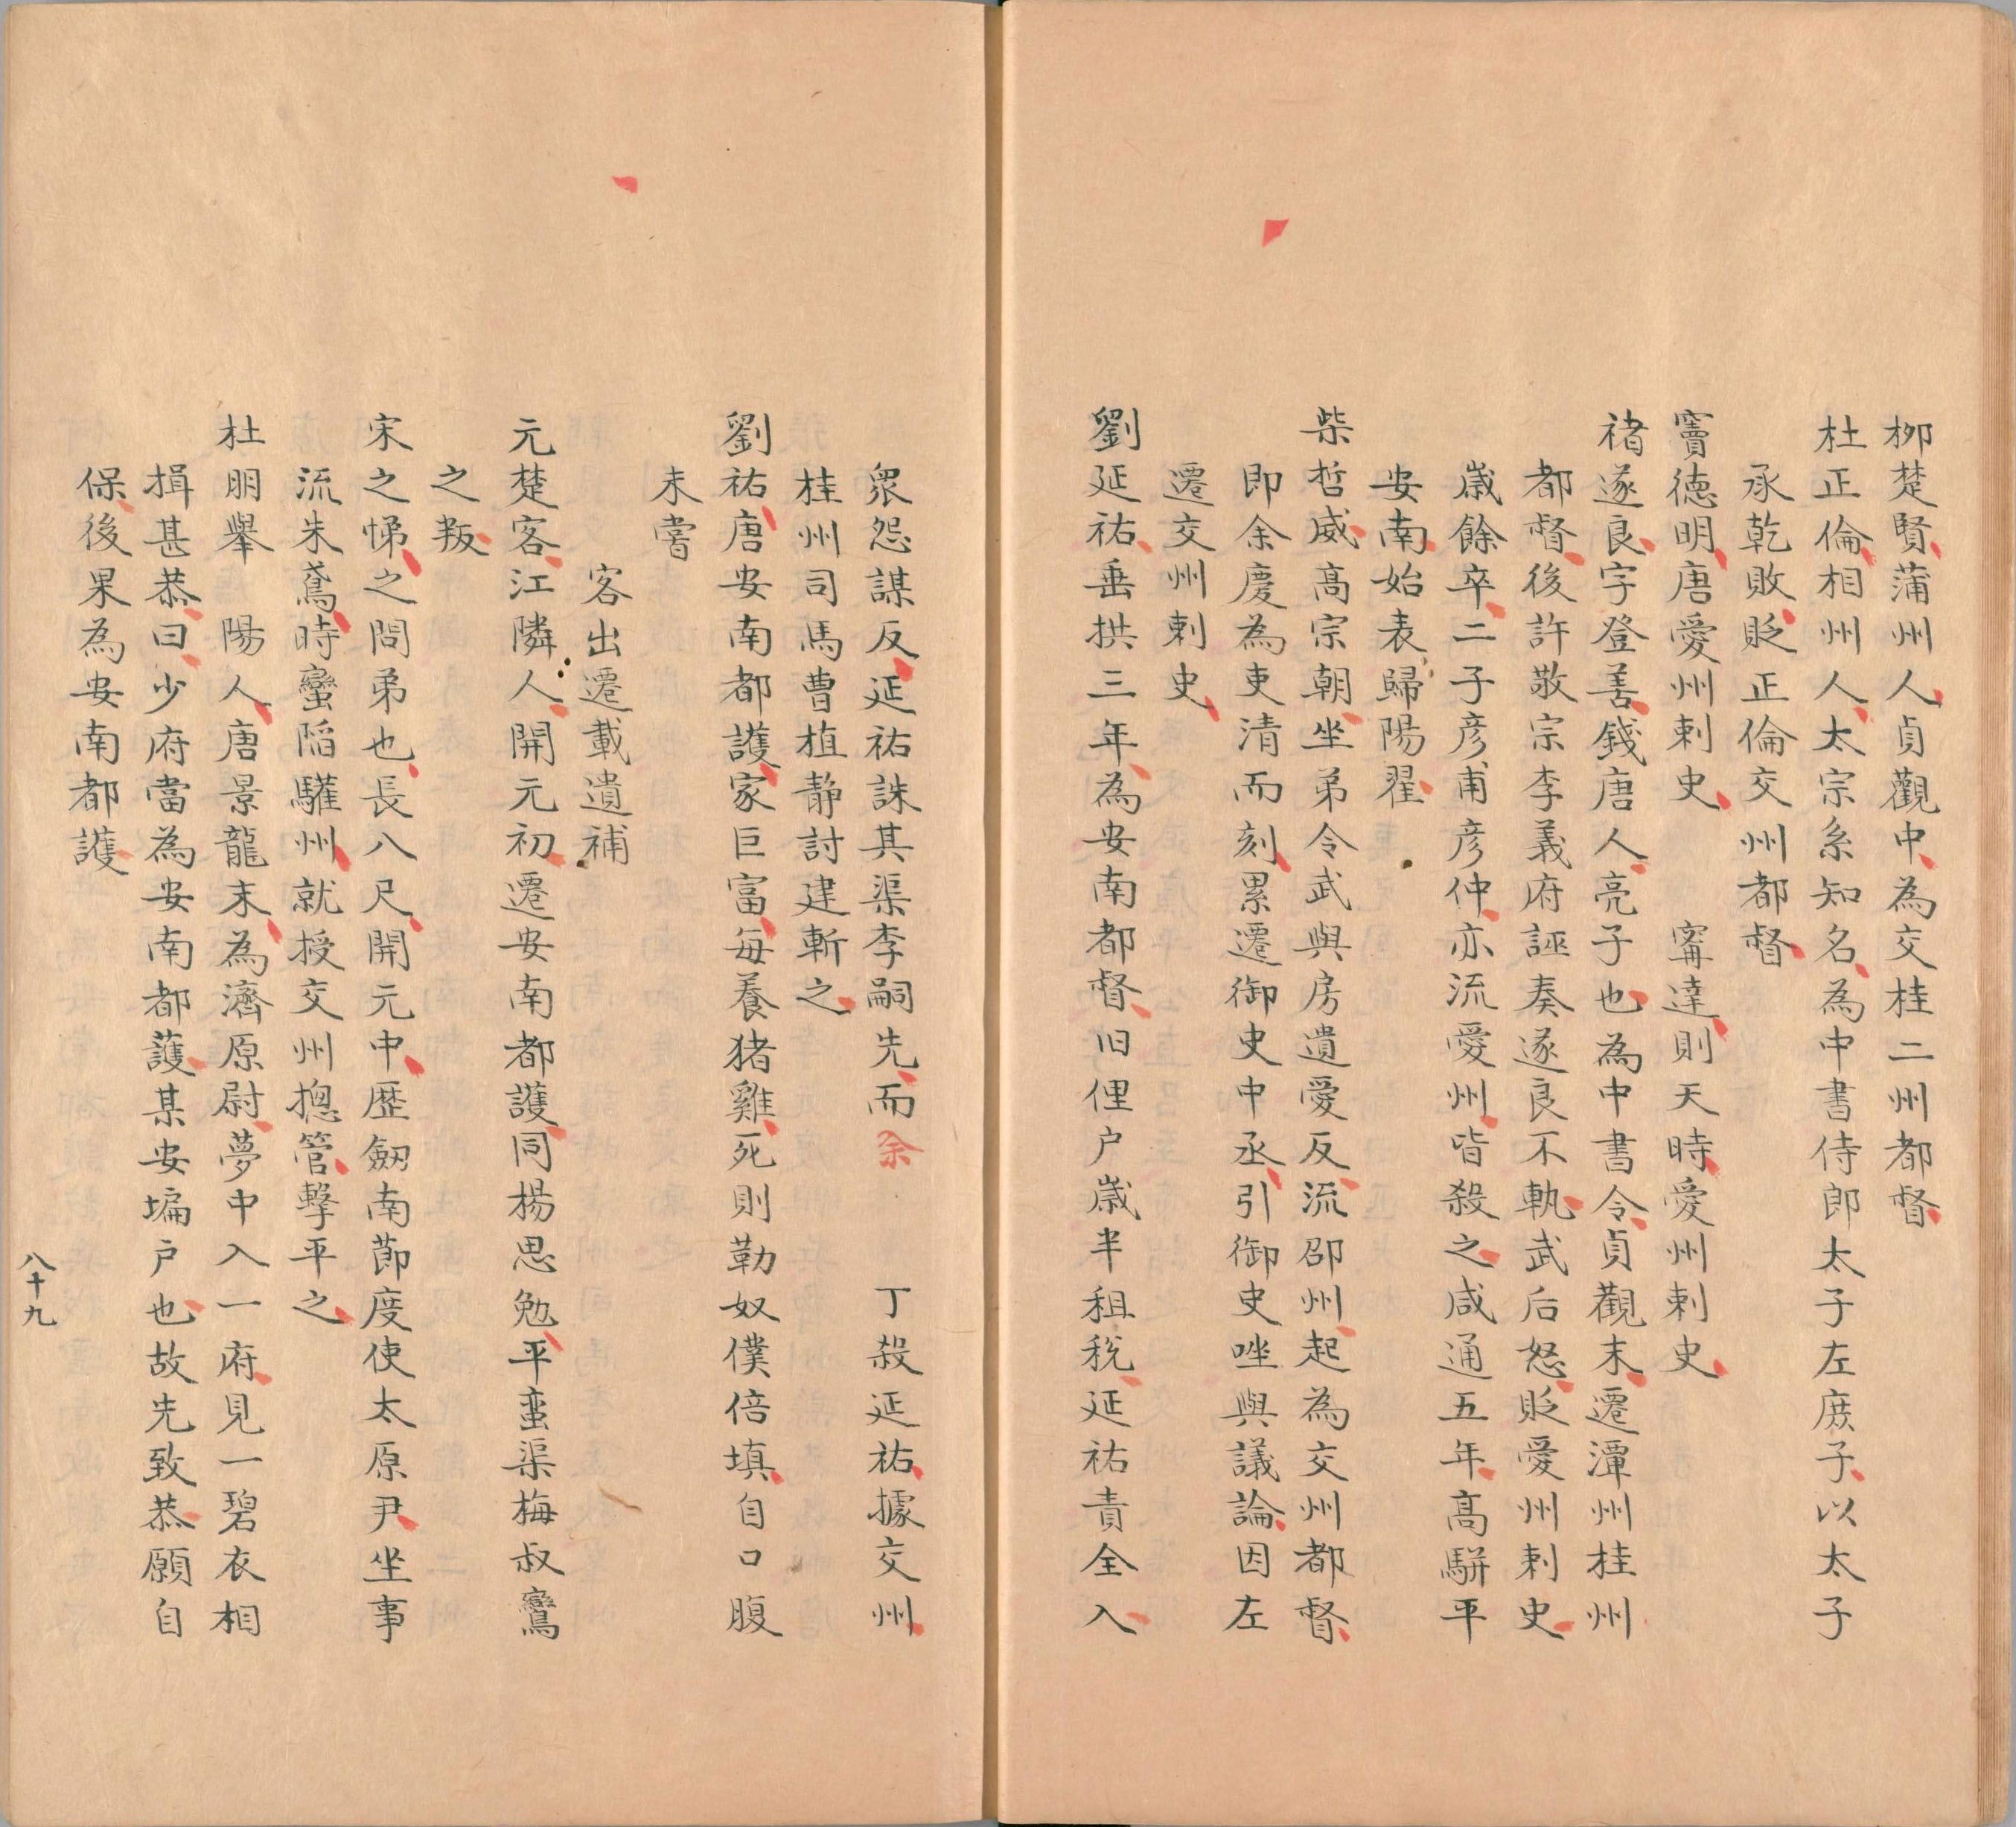 栁楚賢蒲州人貞觀中為交桂二州都督
杜正倫相州人太宗糸知名為中書侍郎太子左庶子以太子
承乾敗貶正倫交州都督
竇德明唐愛州刺史　　　甯達則天時愛州刺史
禇遂良字登善錢唐人亮子也為中書令貞觀末遷潭州桂州
都督後許敬宗李義府誣奏遂良不軌武后怒貶愛州刺史
歲餘卒二子彥甫彥仲亦流愛州皆殺之咸通五年髙駢平
安南始表歸陽翟
柴哲威髙宗朝坐弟令武與房遺愛反流邵州起為交州都督
即余慶為吏清而刻累遷御史中丞引御史唑與議論因左
遷交州刺史
劉延祐垂拱三年為安南都督旧俚户歲半租稅延祐責全入
衆怨謀反延祐誅其渠李嗣先而余　　丁殺延祐據交州
桂州司馬曹植静討建斬之
劉祐唐安南都護家巨富每養猪雞死則勒奴僕倍填自口腹
未嘗
客出遷載遺補
元楚客江隣人開元初遷安南都護同楊思勉平蛮渠梅叔鸞
之叛
宋之悌之問弟也長八尺開元中歷劒南節度使太原尹坐事
流朱鳶時蠻陷驩州就授交州摠管擊平之
杜朋舉　陽人唐景龍末為濟原尉夢中入一府見一碧衣相
揖甚恭曰少府當為安南都護某安塥户也故先致恭願自
保後果為安南都護
八十九